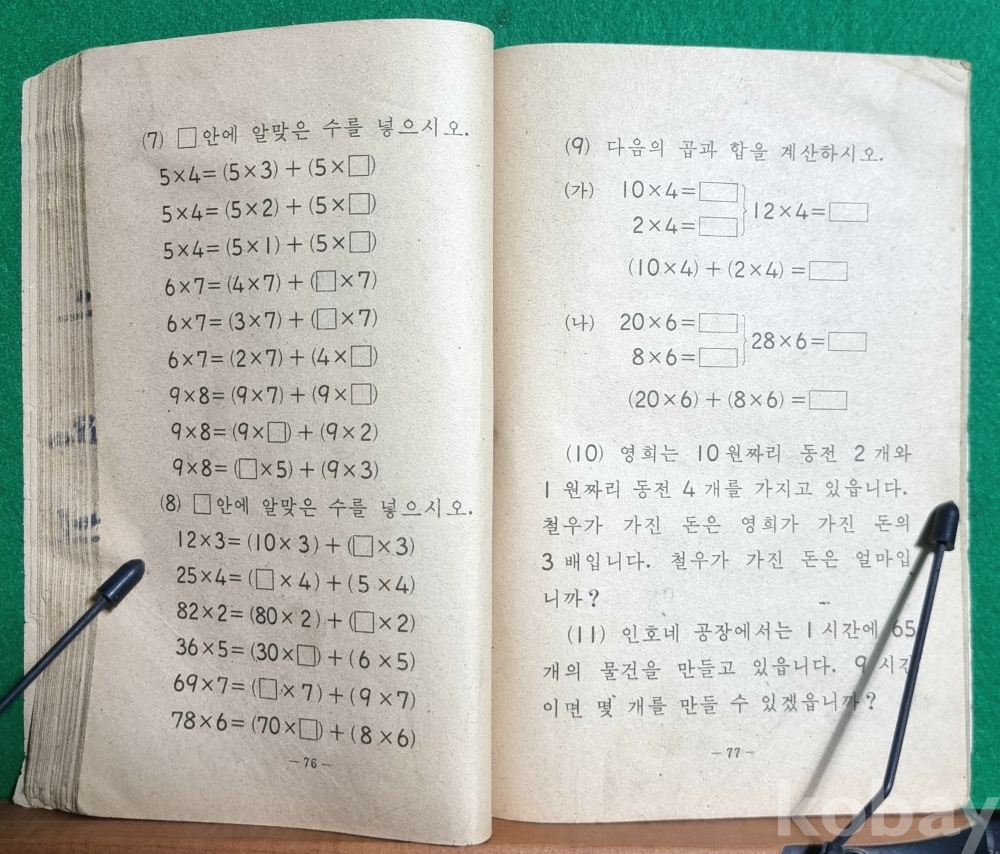 (7) □안에 알맞은 수를 넣으시오.
5×4=(5×3)+(5×□)
5×4=(5×2)+(5×□)
5×4=(5×1)+(5×□)
6×7=(4×7)+(□×7)
6×7=(3×7)+(□×7)
6×7=(2×7)+(4×□)
9×8=(9×7)+(9×□)
9×8=(9×□)+(9×2)
9×8=(□×5)+(9×3)
(8) □안에 알맞은 수를 넣으시오.
12×3=(10×3)+(□×3)
25×4=(□×4)+(5×4)
82×2=(80×2)+(□×2)
36×5=(30×□)+(6×5)
69×7=(□×7)+(9×7)
78×6=(70×□)+(8×6)
－76－
(9) 다음의 곱과 합을 계산하시오.
(가) 10×4=□
2×4=□ 12×4=□
(10×4)+(2×4)=□
(나) 20×6=□
8×6=□ 28×6=□
(20×6)+(8×6)=□
(10) 영희는 10원짜리 동전 2개와
1원짜리 동전 4개를 가지고 있읍니다.
철우가 가진 돈은 영희가 가진 돈의
3배입니다. 철우가 가진 돈은 얼마입
니까?
(11) 인호네 공장에서는 1시간에 65
개의 물건을 만들고 있읍니다. 9시간
이면 몇 개를 만들 수 있겠읍니까?
－77－
kobay